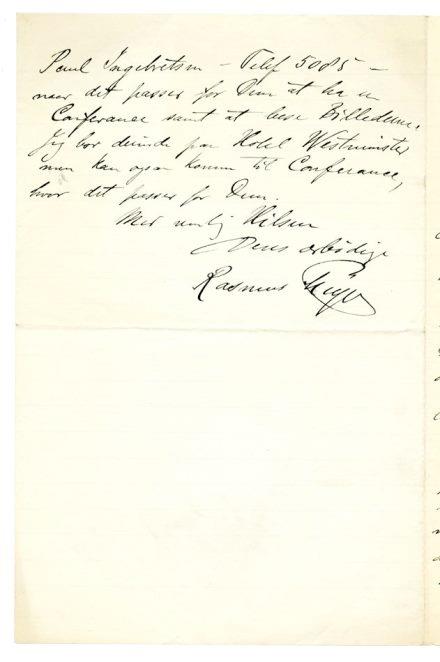 Paul Ingebretsen – Telf 5085 –
naar det passer for Dem at ha en
Conferance samt at bese Billederne.
Jeg bor deinde paa Hotel Westminster
men kan ogsaa komme til Conferance,
hvor det passer for Dem.
Med venlig Hilsen
Deres ærbødige
Rasmus Meyer